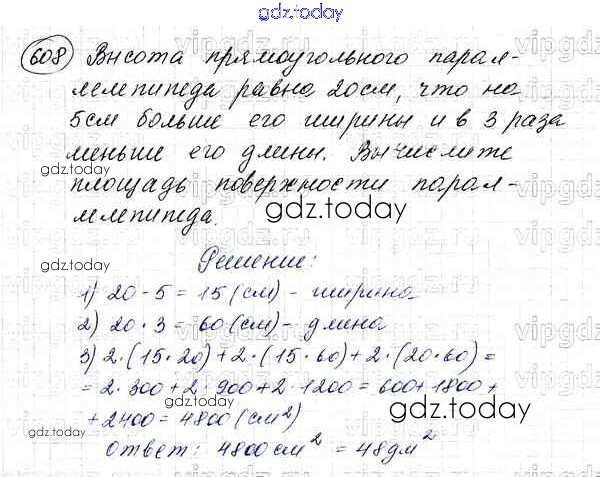 gdz.today
608 Высота прямоугольного парал-
лелепипеда равна 20см, что на
5см больше его ширины и в 3 раза
меньше его длины. Вычислите
площадь поверхности парал-
лелепипеда.
gdz.today
gdz.today
Решение:
1) 20 - 5 = 15 (см) - ширина
2) 20 · 3 = 60 (см) - длина
3) 2·(15·20) + 2·(15·60) + 2·(20·60) =
= 2·300 + 2·900 + 2·1200 = 600 + 1800 +
+ 2400 = 4800 (см²)
gdz.today
gdz.today
Ответ: 4800 см² = 48 дм²